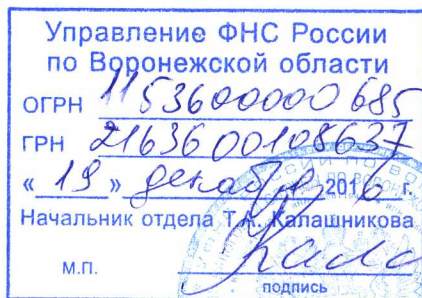 Управление ФНС России
по Воронежской области
ОГРН 1153600000685
ГРН 2163600108637
« 19 » декабря 2016 г.
Начальник отдела Т.А. Калашникова
М.П.
подпись